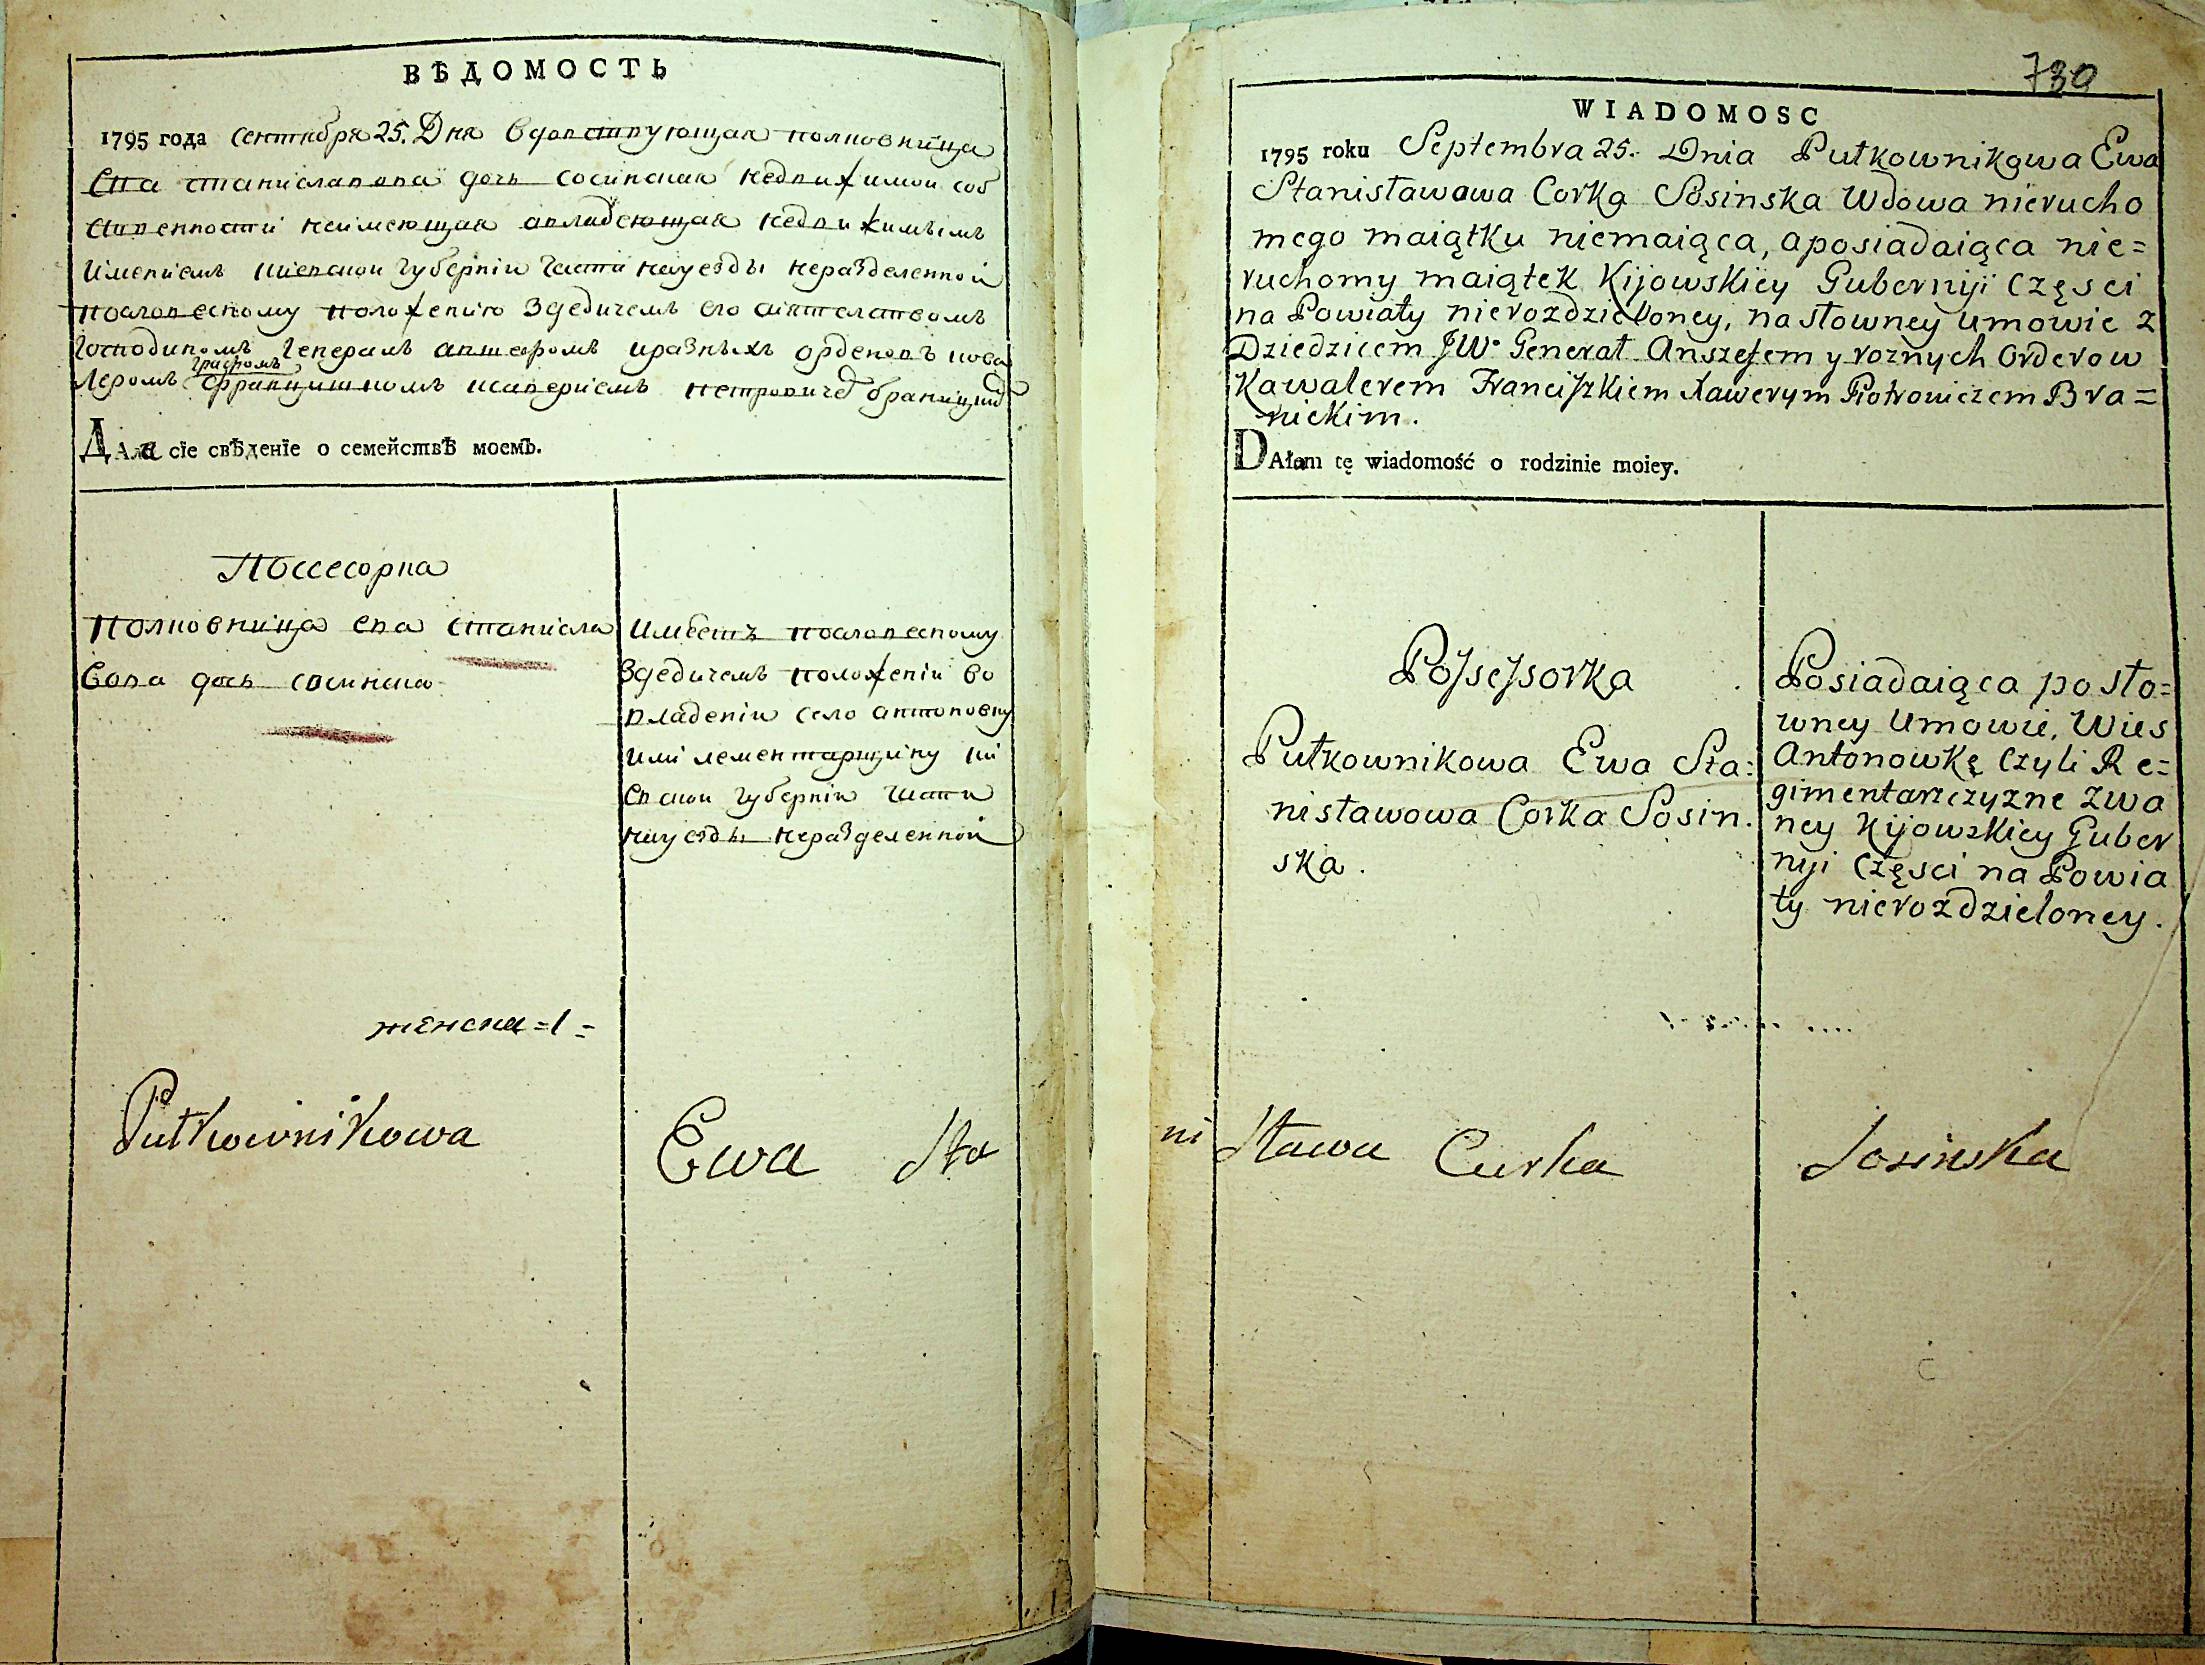 ВѢДОМОСТЬ
1795 года сентября 25. Дня вдовствующая полковница
Ева станиславова дочь сосинская недвижимой соб
ственности неимеющая авладеющая недвижимымъ
имениемъ киевской губернии части науезды неразделенной
пословесному положению здедичемъ его сиятелствомъ
Господиномъ Генералъ аншефомъ иразныхъ орденовъ кава
графомъ
леромъ францишкомъ ксавериемъ петровичемъ браницкимъ
ДАла сїе свѣденїе о семействѣ моемъ.
Поссесорка
полковница ева станисла
вова дочь сосинска
имеетъ пословесному
здедичемъ положении во
владении село антоновку
или лементарщину ки
евской губернии части
науезды неразделенной
женска = 1 =
Pułkownikowa Ewa Sta
730
WIADOMOSC
1795 roku Septembra 25. Dnia Pułkownikowa Ewa
Stanisławowa Corka Sosinska Wdowa nierucho
mego maiątku niemaiąca, a posiadaiąca nie=
ruchomy maiątek Kijowskiey Guberniji Częsci
na Powiaty nierozdzieloney, na słowney umowie z
Dziedzicem JW. Generał Anszefem y roznych Orderow
Kawalerem Franciszkiem Xawerym Piotrowiczem Bra=
nickim.
DAłam tę wiadomość o rodzinie moiey.
Possessorka
Pułkownikowa Ewa Sta=
nisławowa Corka Sosin.
ska.
Posiadaiąca po sło=
wney Umowie, Wies
Antonowkę czyli Re=
gimentarszczyzne zwa
ney Kijowskiey Guber
nyi Częsci na Powia
ty nierozdzieloney.
ni sława Curka Sosinska